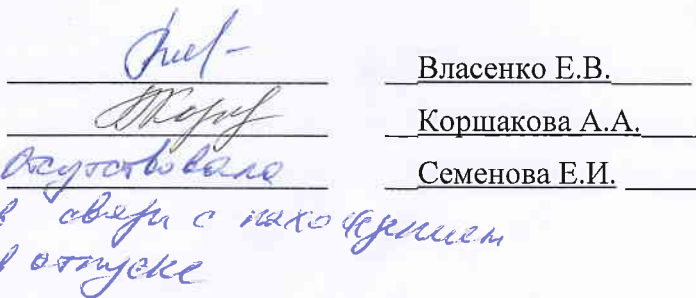 Власенко Е.В.
Коршакова А.А.
Отсутствовала Семенова Е.И.
в связи с нахождением
в отпуске